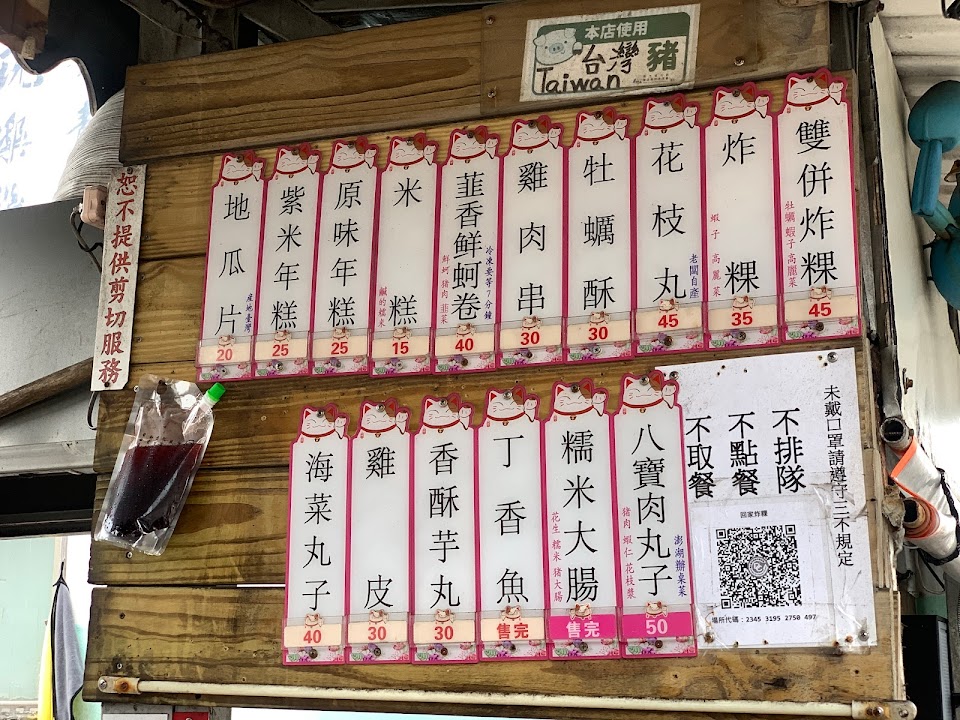 本店使用
台灣豬
Taiwan
恕不提供剪切服務
雙併炸粿
牡蠣 蝦子 高麗菜
45
炸粿
蝦子 高麗菜
35
花枝丸
老闆自產
45
牡蠣酥
30
雞肉串
30
韮香鮮蚵卷
冷凍要等7分鐘
鮮蚵 豬肉 韮菜
40
米糕
鹹的糯米
15
原味年糕
25
紫米年糕
25
地瓜片
產地臺灣
20
八寶肉丸子
澎湖辦桌菜
豬肉 蝦仁 花枝漿
50
糯米大腸
花生 糯米 豬大腸
售完
丁香魚
售完
香酥芋丸
30
雞皮
30
海菜丸子
40
未戴口罩請遵守三不規定
不排隊
不點餐
不取餐
回家炸粿
場所代碼：2345 3195 2750 497